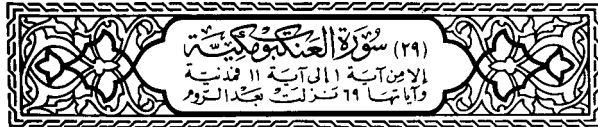 (٢٩) سُورَة العَنكَبُوتْ مَكيَّة
إلا مِن آيَة ١ إلى آيَة ١١ فمَدنيَّة
وَآياتهَا ٦٩ نَزلَتْ بَعْدَ الرُّوم